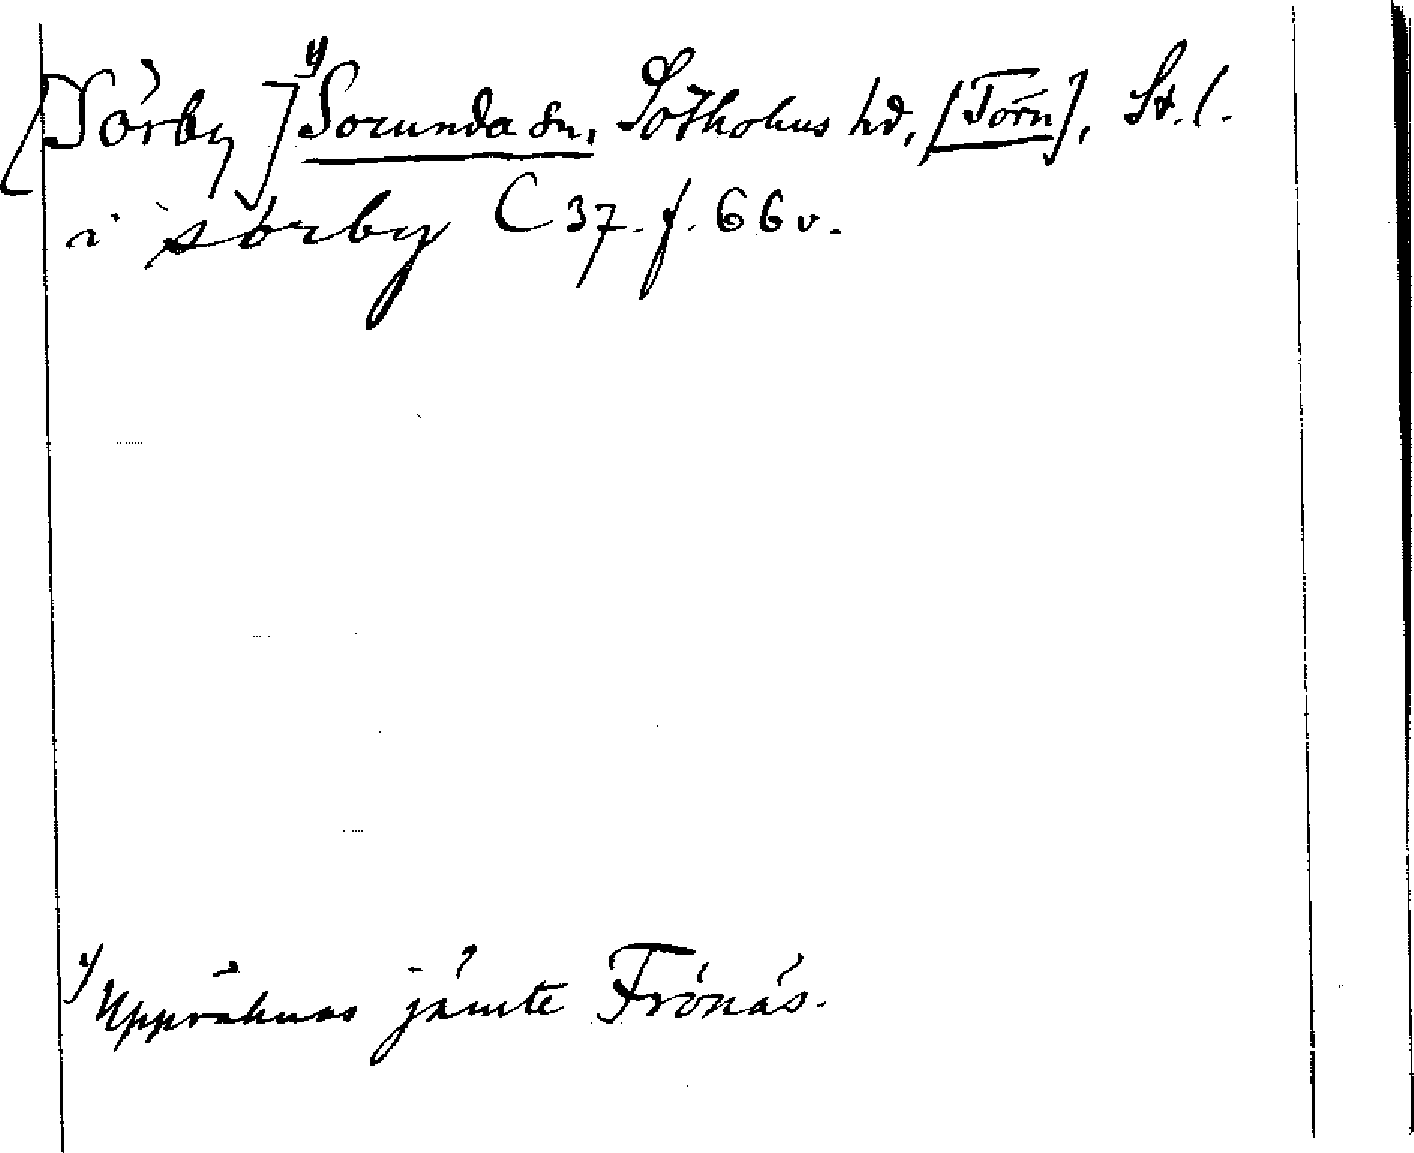 [Sörby]¹⁾ Sorunda sn, Sotholms hd, [Törn], St. l.
i sørby C 37. f. 66 v.
¹⁾ Uppräknas jämte Frönäs.